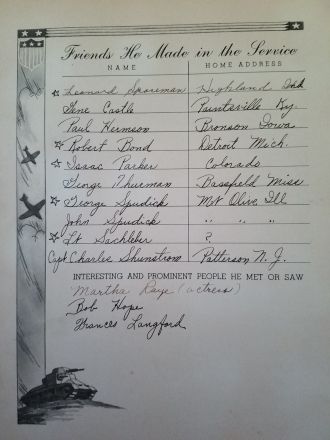 Friends He Made in the Service
NAME HOME ADDRESS
Leonard Highland Ind
Gene Castle Paintsville Ky.
Paul Bronson Iowa
Robert Bond Detroit Mich.
Isaac Parker Colorado
George Thurman Bassfield Miss
George Spudick Mt Olive, Ill
John Spudick " " "
Lt ?
Capt Charles Shunstrom Patterson N. J.
INTERESTING AND PROMINENT PEOPLE HE MET OR SAW
Martha Raye (actress)
Bob Hope
Frances Langford